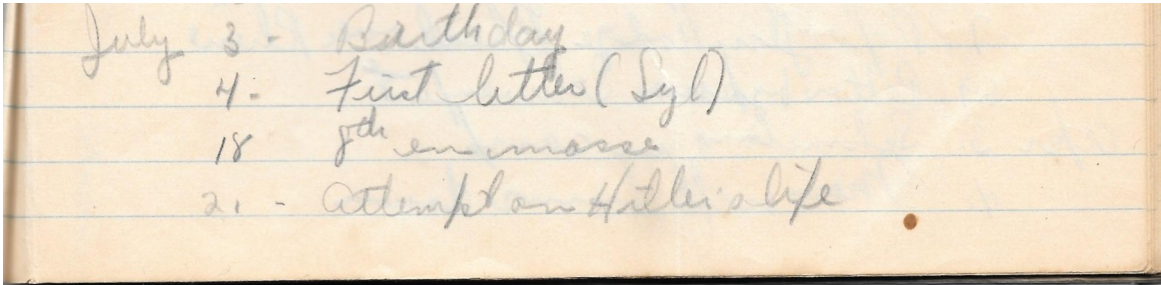 July 3 - Birthday
4. - First letter (Syl)
18 8th en masse
21 - Attempt on Hitler's life